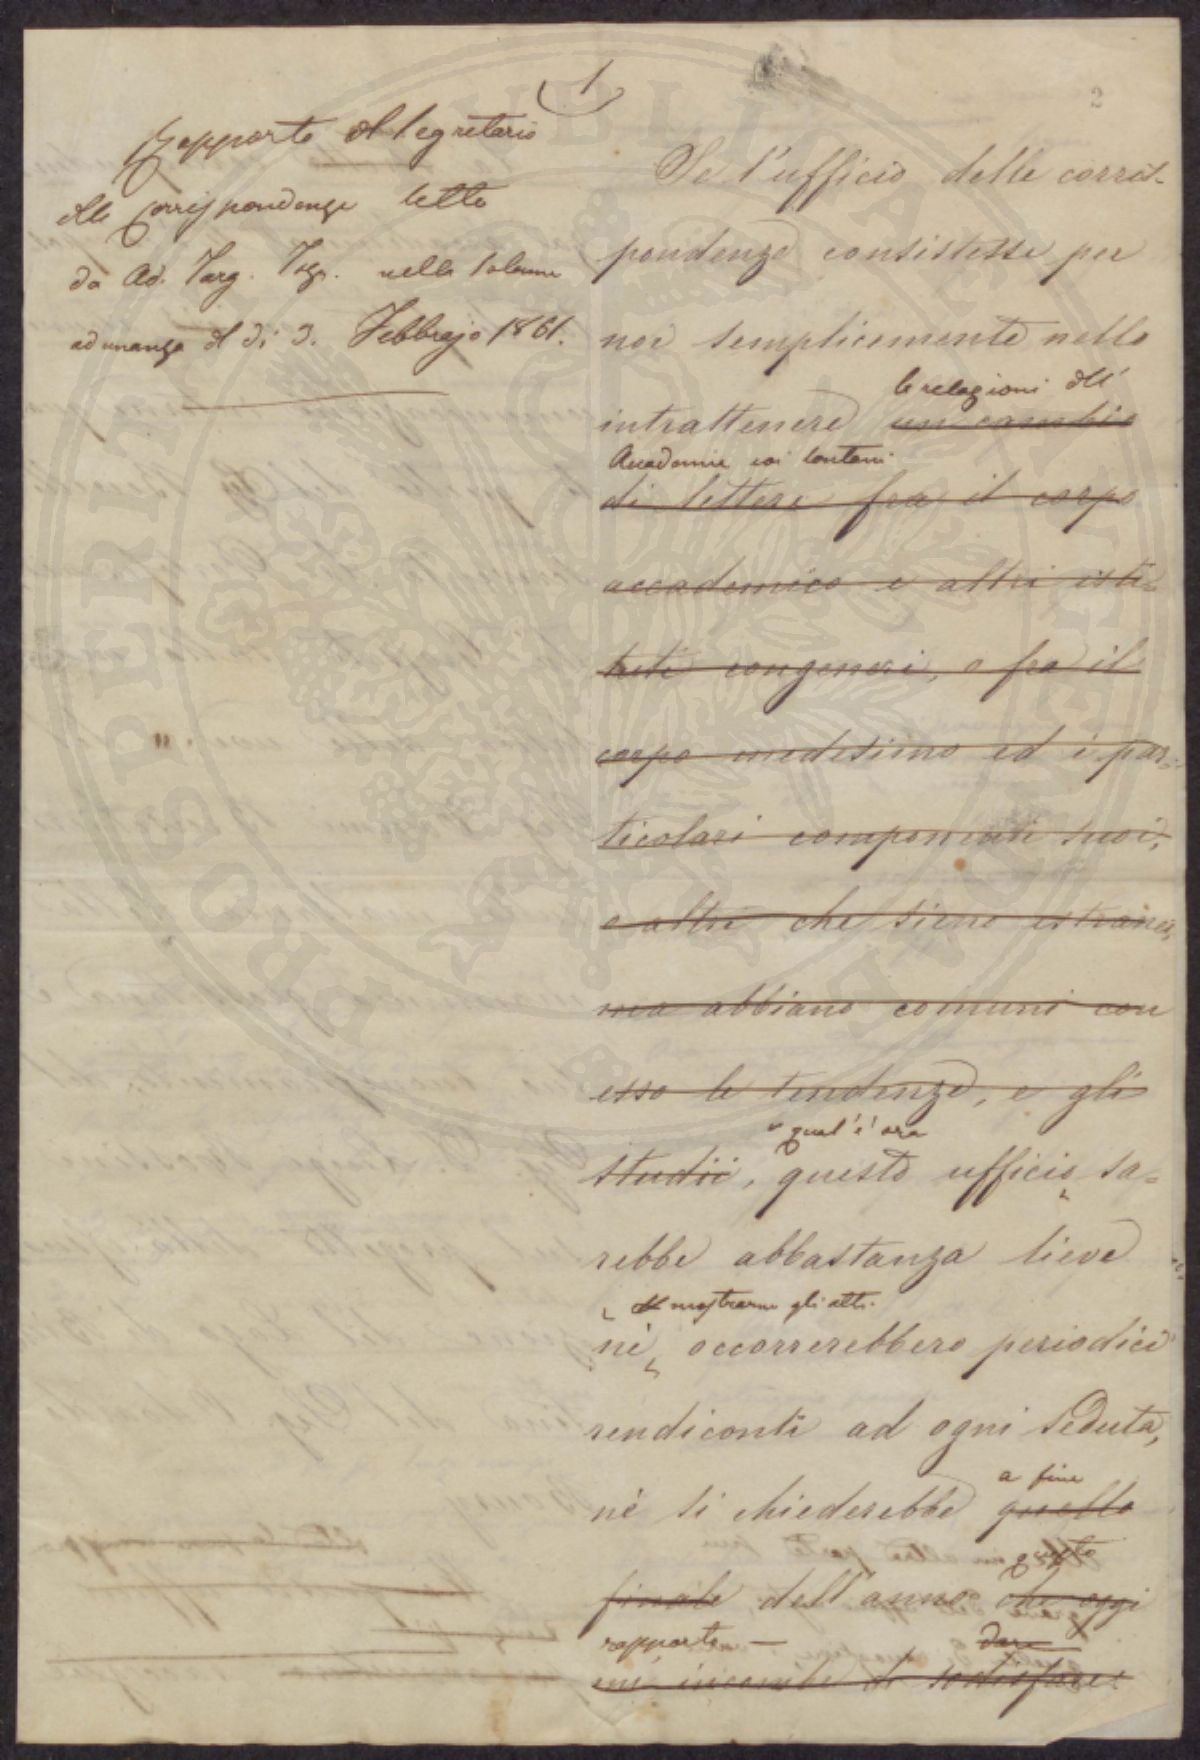 1
2
Rapporto del Segretario
delle Corrispondenze letto
da Ad. Targ. Tozz. nella solenne
adunanza del dì 3. Febbrajo 1861.
Se l'ufficio delle corris-
pondenze consistesse per
noi semplicemente nello
le relazioni dell'
intrattenere un cambio
Accademia coi lontani
di lettere fra il corpo
accademico e altri isti-
tuti congeneri, o fra il
corpo medesimo ed i par-
ticolari componenti suoi,
o altri che sieno estranei,
ma abbiano comuni con
esso le tendenze, e gli
qual'è ora
studii, questo ufficio sa-
rebbe abbastanza lieve
mostrarne gli atti.
nè occorrerebbero periodici
rendiconti ad ogni seduta,
a fine
nè si chiederebbe quello
questo
finale dell'anno che oggi
rapporto — dare
mi incombe di sodisfare.
PROSPERITÀ